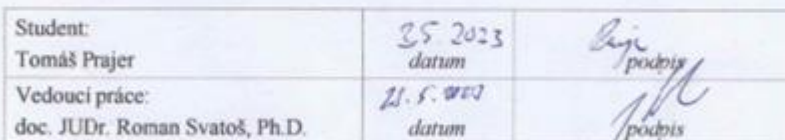 Student:
Tomáš Prajer
2023
datum
podpis
Vedoucí práce:
doc. JUDr. Roman Svatoš, Ph.D.
datum
podpis